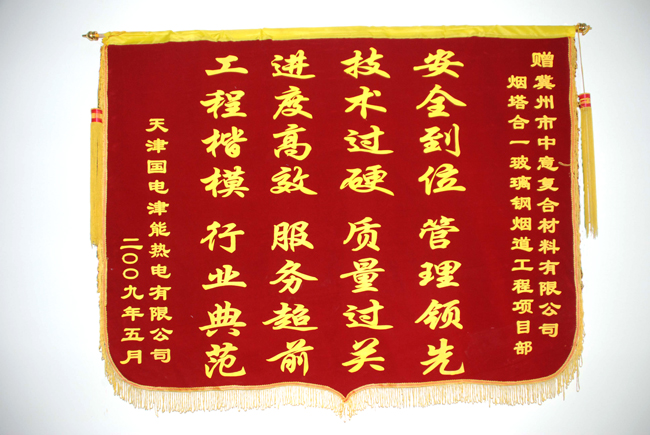 赠冀州市中意复合材料有限公司
烟塔合一玻璃钢烟道工程项目部
安全到位 管理领先
技术过硬 质量过关
进度高效 服务超前
工程楷模 行业典范
天津国电津能热电有限公司
二〇〇九年五月